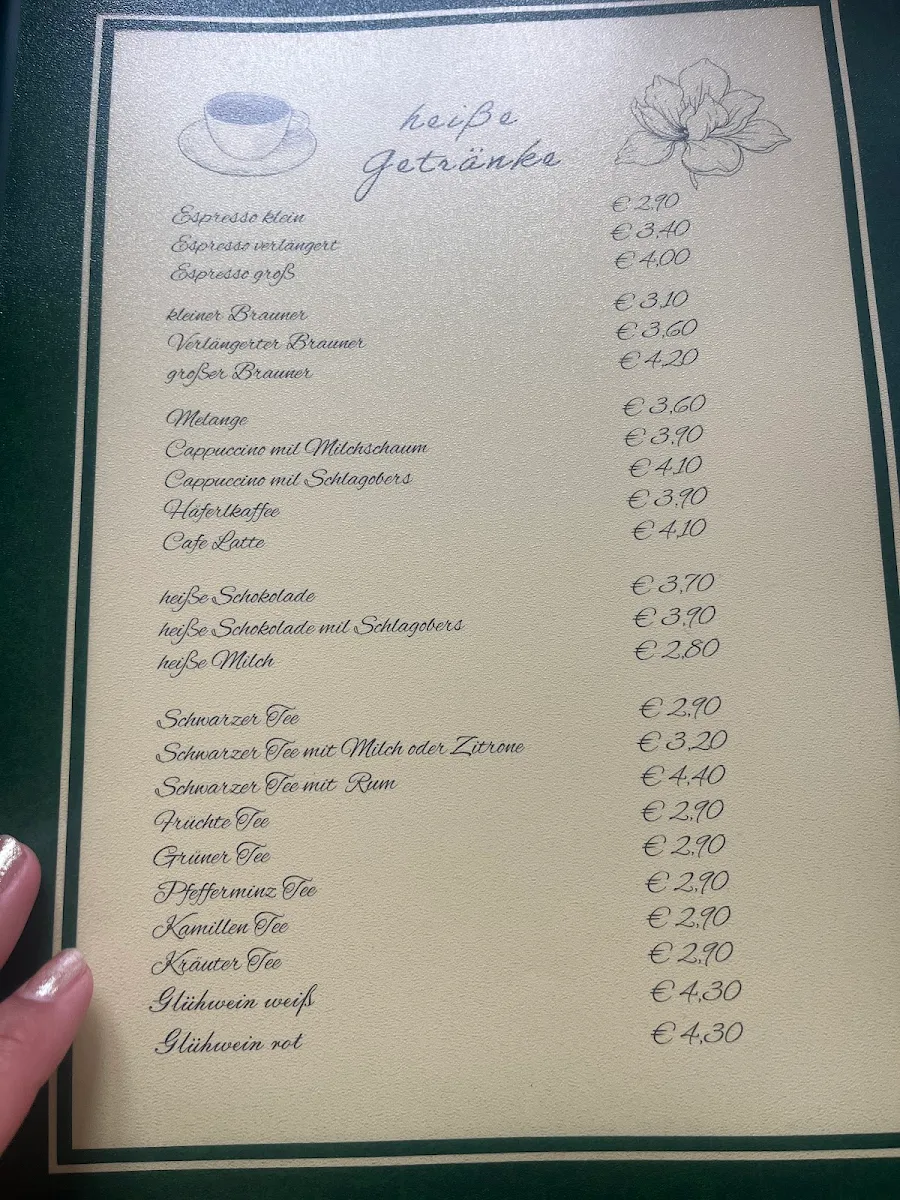 heiße
Getränke
Espresso klein € 2,90
Espresso verlängert € 3,40
Espresso groß € 4,00
kleiner Brauner € 3,10
Verlängerter Brauner € 3,60
großer Brauner € 4,20
Melange € 3,60
Cappuccino mit Milchschaum € 3,90
Cappuccino mit Schlagobers € 4,10
Häferlkaffee € 3,90
Cafe Latte € 4,10
heiße Schokolade € 3,70
heiße Schokolade mit Schlagobers € 3,90
heiße Milch € 2,80
Schwarzer Tee € 2,90
Schwarzer Tee mit Milch oder Zitrone € 3,20
Schwarzer Tee mit Rum € 4,40
Früchte Tee € 2,90
Grüner Tee € 2,90
Pfefferminz Tee € 2,90
Kamillen Tee € 2,90
Kräuter Tee € 2,90
Glühwein weiß € 4,30
Glühwein rot € 4,30